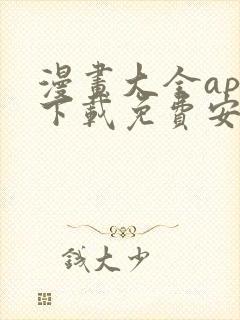 漫畫大全ap
下載免費安
錢大少